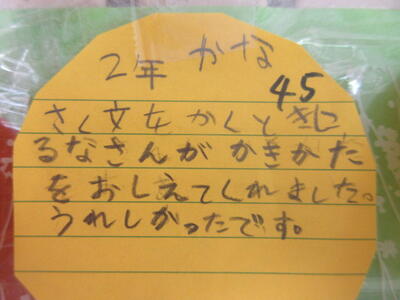 2年 かな
45
さく文をかくときに、
るなさんが かきかた
をおしえてくれました。
うれしかったです。